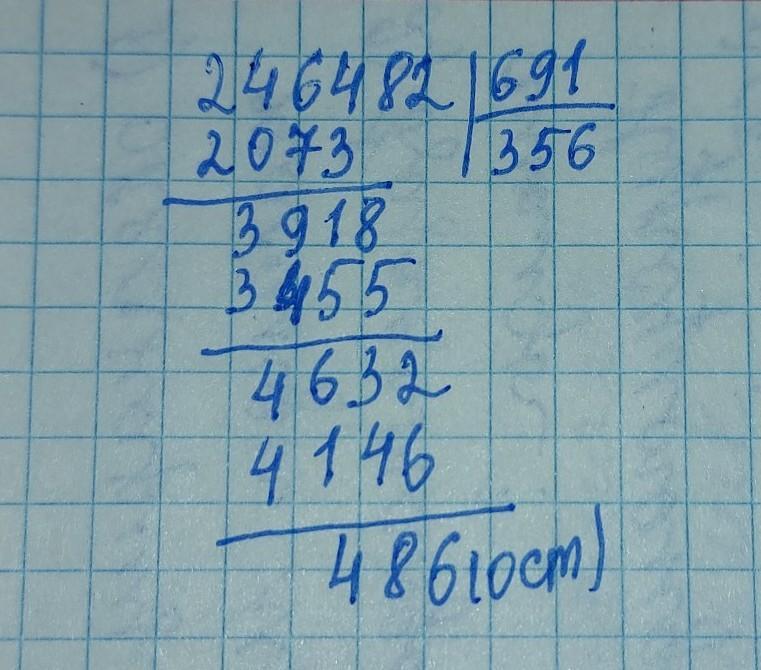 246482 691
2073 356
3918
3455
4632
4146
486(ост)